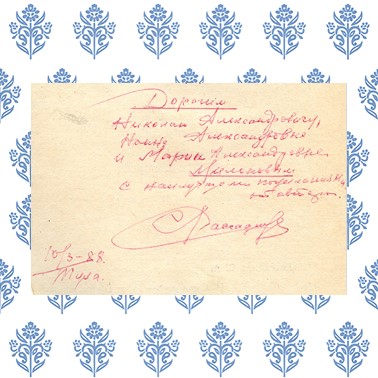 Дорогим
Николаю Александровичу,
Нонне Александровне
и Марии Александровне
с наилучшими пожеланиями
от автора.
10/3-88.
Тула.